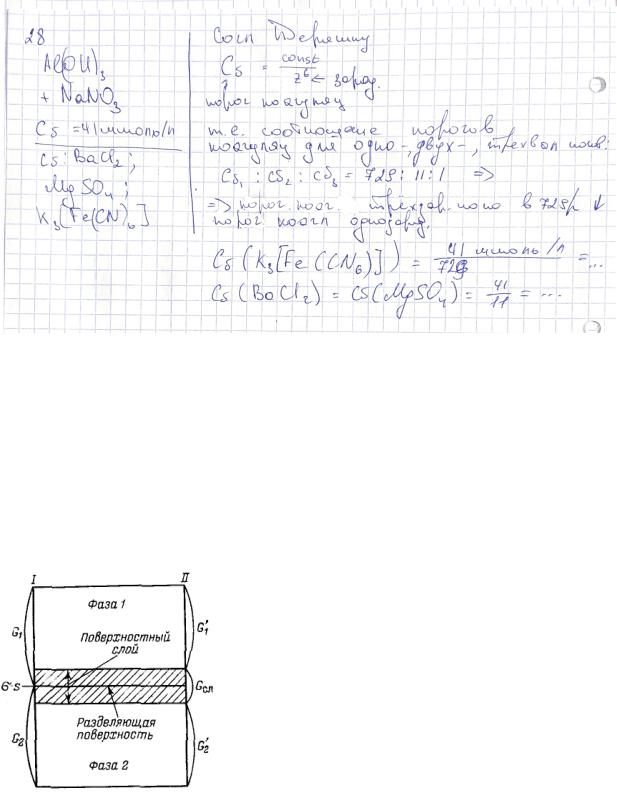 28
Al(OH)3
+ NaNO3
Cб = 41 ммоль/л
Cб: BaCl2;
MgSO4;
K3[Fe(CN)6]
Cб = const / z^6 ← заряд.
порог коагуляц
т.е. соотношение порогов
коагуляц для одно-, двух-, трехвал ионов:
Cб1 : Cб2 : Cб3 = 729 : 11 : 1 =>
=> порог. коаг. трёхзар. иона в 729р ↓
порог коагл однозаряд.
Cб (K3[Fe(CN6)]) = 41 ммоль/л / 729 = ...
Cб (BaCl2) = Cб(MgSO4) = 41 / 11 = ...
I II
Фаза 1
G1 G1'
Поверхностный
слой
σ·s Gсл
Разделяющая
поверхность
G2 G2'
Фаза 2